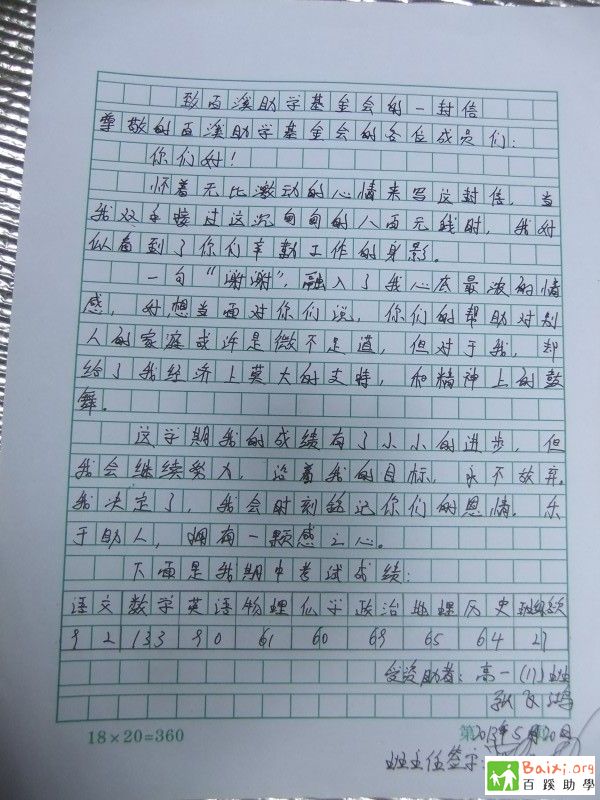 致百溪助学基金会的一封信
尊敬的百溪助学基金会的各位成员们：
你们好！
怀着无比激动的心情来写这封信，当
我双手接过这沉甸甸的八百元钱时，我好
似看到了你们辛勤工作的身影。
一句“谢谢”，融入了我心底最浓的情
感，好想当面对你们说，你们的帮助对别
人的家庭或许是微不足道，但对于我，却
给了我经济上莫大的支持，和精神上的鼓
舞。
这学期我的成绩有了小小的进步，但
我会继续努力，沿着我的目标，永不放弃。
我决定了，我会时刻铭记你们的恩情，乐
于助人，拥有一颗感之心。
下面是我期中考试成绩：
语文 数学 英语 物理 化学 政治 地理 历史 班级名次
92 133 90 61 60 69 65 64 27
受资助者：高一（11）班
2013年5月20日
18×20=360
班主任签字
Baixi.org
百蹊助學